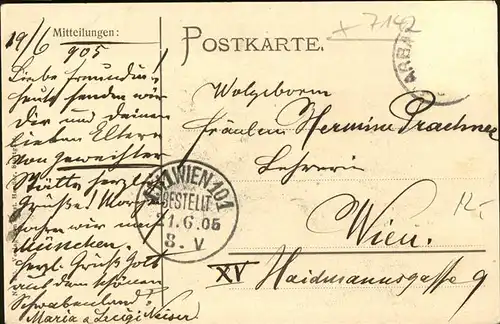 19/6 Mitteilungen:
905
Liebe Freundin!
Heute senden wir
Dir und deinen
lieben Eltern
von geweihter
Stätte herzl.
Grüße! Morgen
fahren wir nach
München.
Herzl. Grüß Gott
aus dem schönen
Schwabenland!
Maria
POSTKARTE.
+ 7142
Wolgeborn
Fräulein Hermine Prachner
Lehrerin
Wien.
XV Haidmannsgasse 9
12.-
WIEN 101
BESTELLT
21.6.05
8.V